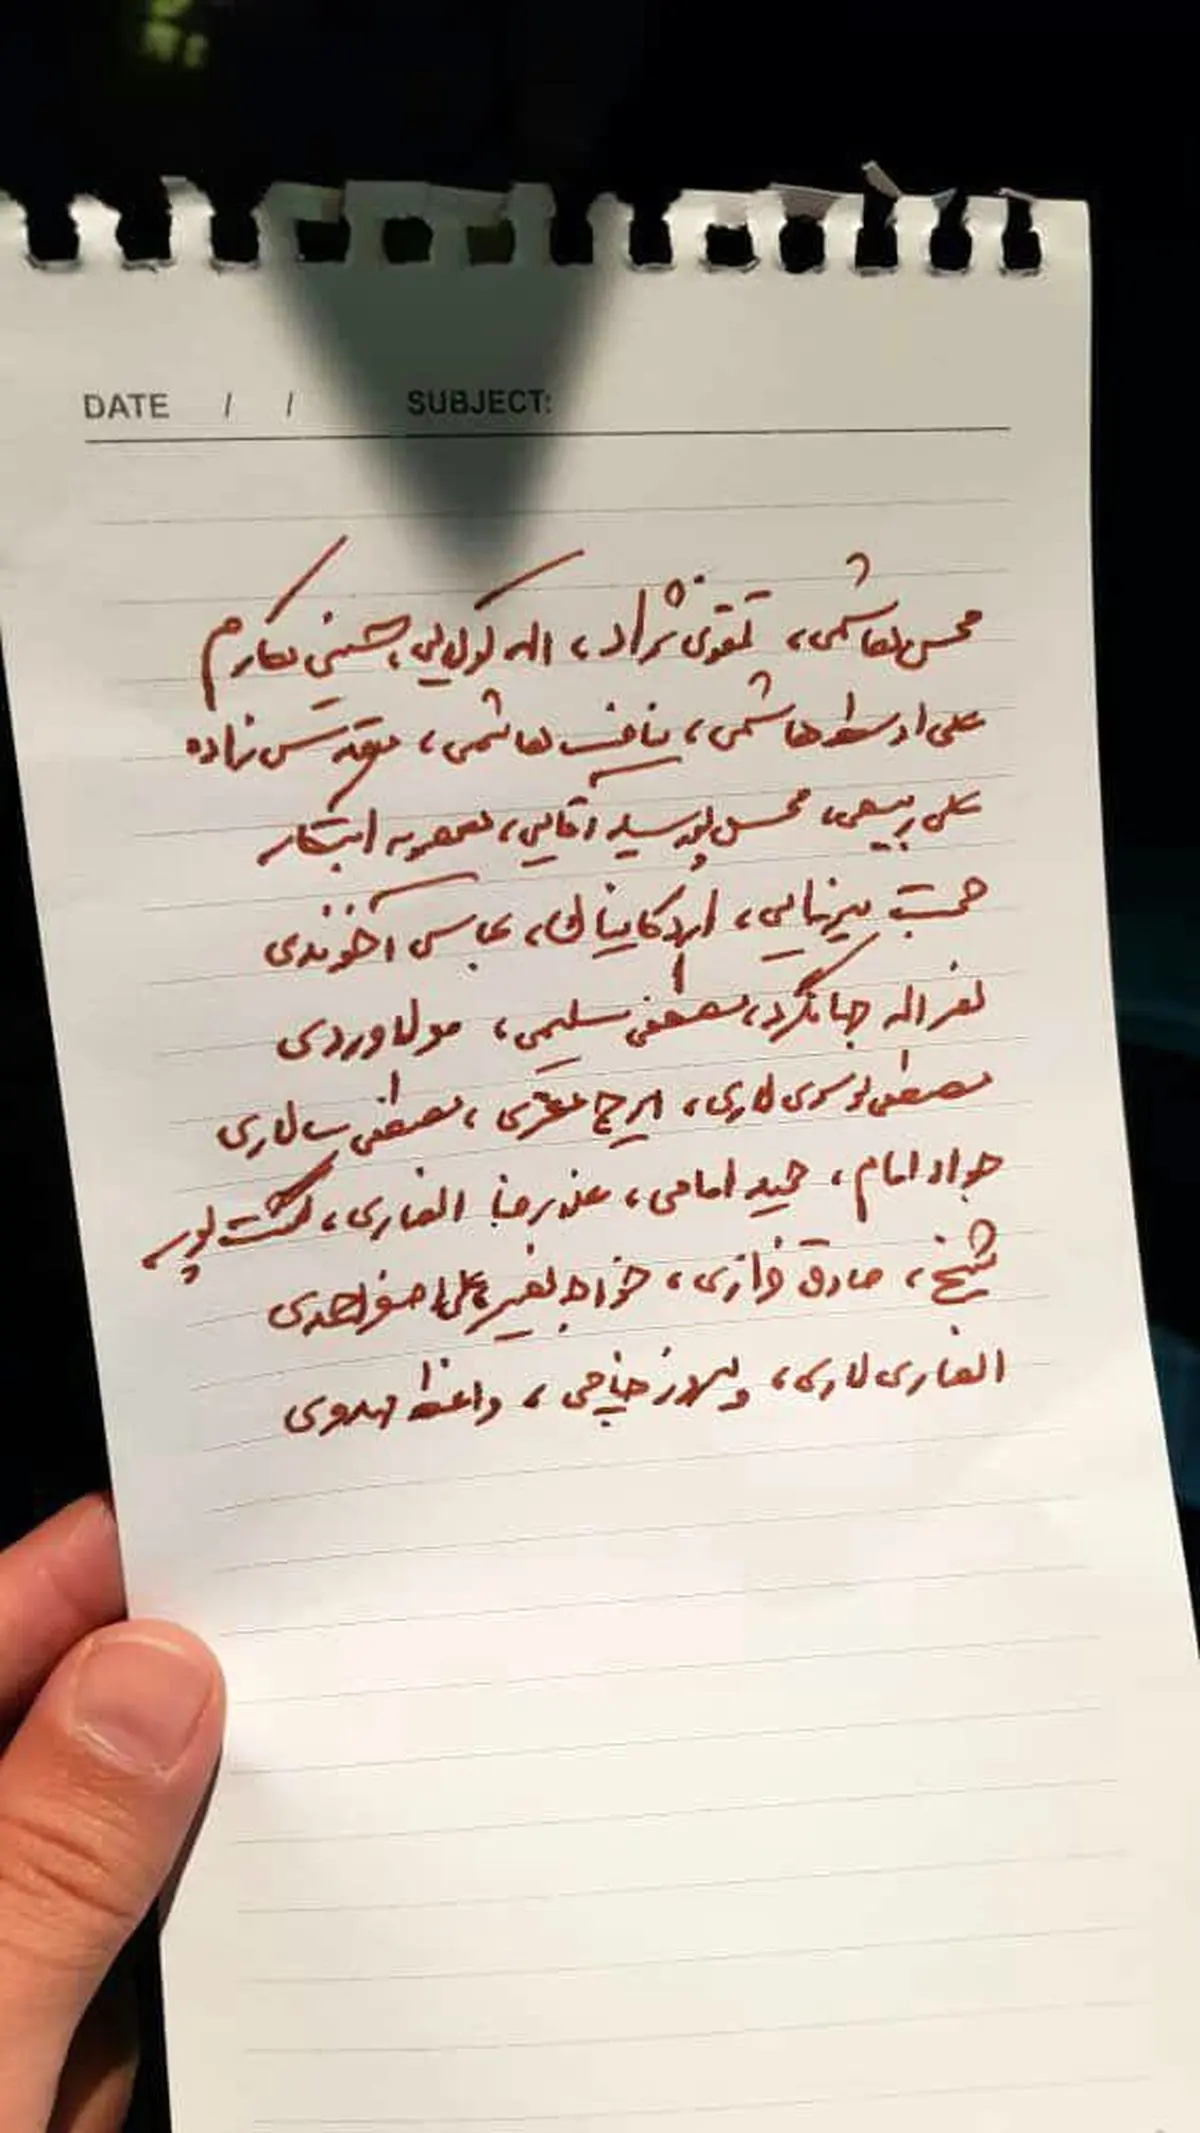 DATE / / SUBJECT:
محسن هاشمی، تقوی نژاد، اله کولایی، حسینی مکارم
علی اوسط هاشمی، یاسر هاشمی، مقدس زاده
علی ربیعی، محسن پورسید آقایی، معصومه ابتکار
حجت میرزایی، اردکانیان، عباس آخوندی
نصراله جهانگرد، مصطفی سلیمی، مولاوردی
مصطفی موسوی لاری، ایرج معزی، مصطفی س لاری
جواد امام، حمید امامی، علیرضا انصاری، حکمت پور
شیخ، صادق خرازی، خواجه نصیر، علی اصغر احمدی
انصاری لاری، بهروز، واعظ مهدوی